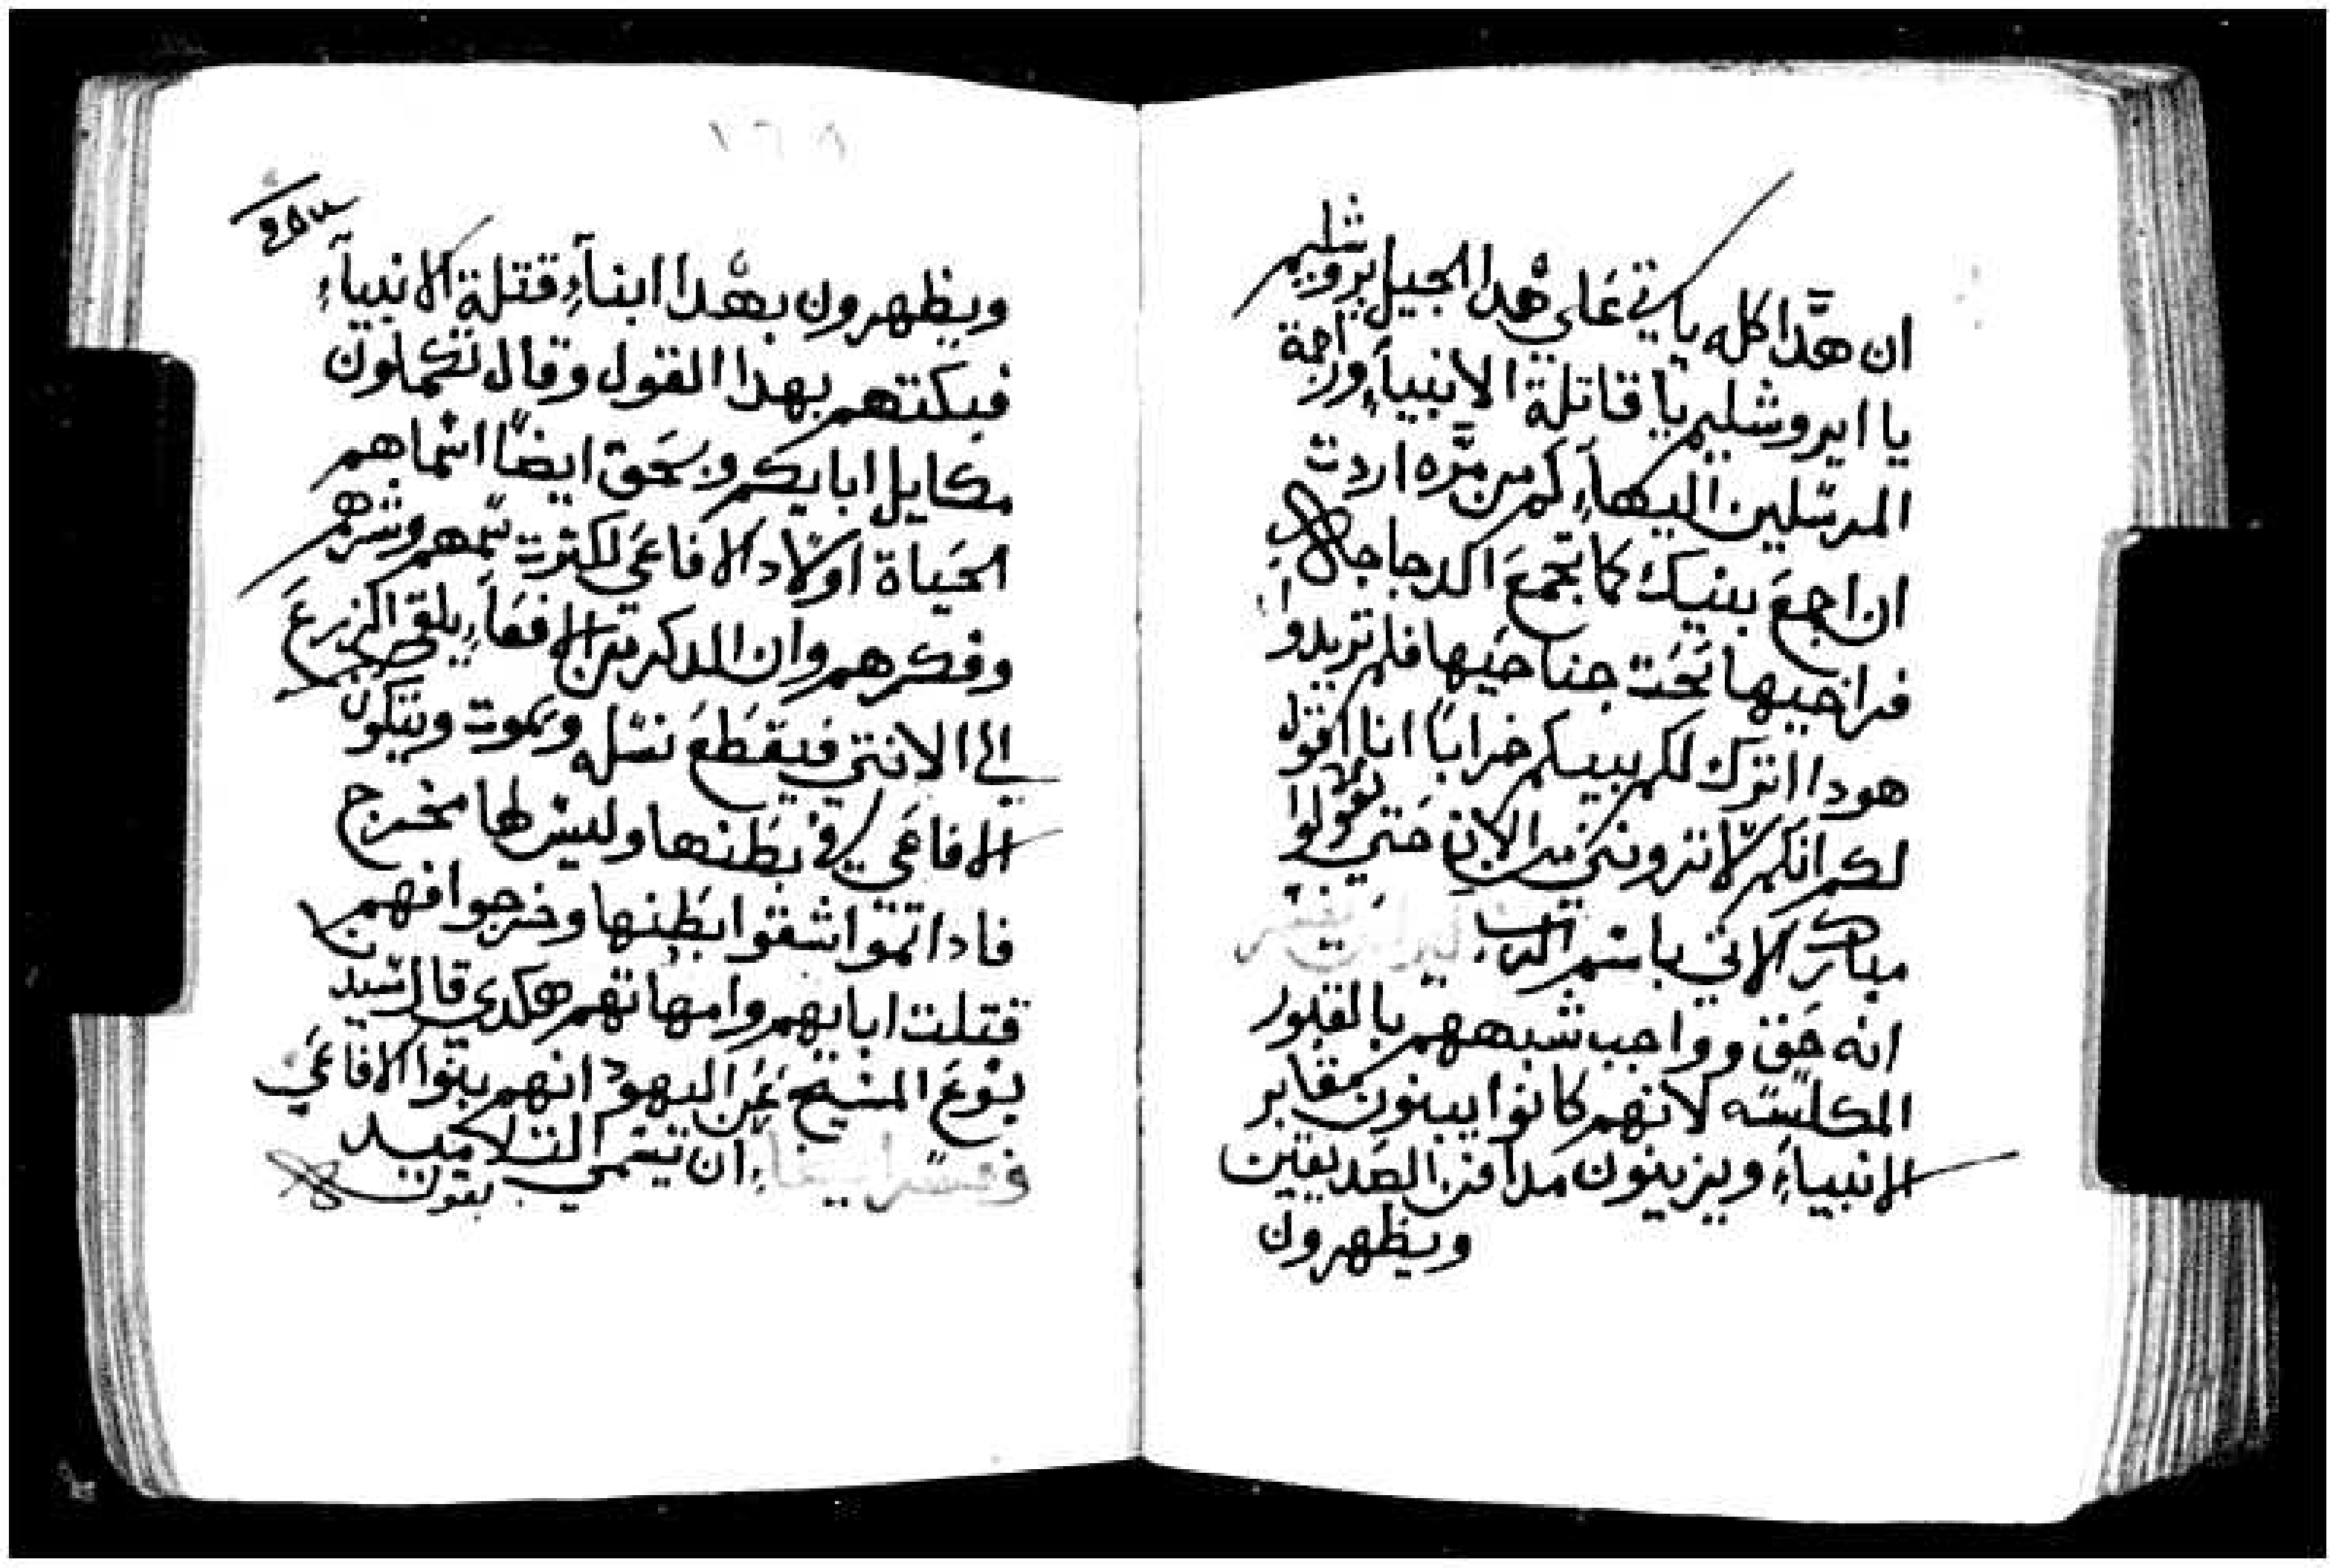 ان هدا كله ياتي على هدا الجيل يروشليم
يا ايروشليم يا قاتلة الانبياء وراجمة
المرسلين اليهاء كم من مره اردت
ان اجمع بنيك كما تجمع الدجاجه
فراخيها تحت جناحيها فلم تريدوا
هودا اترك لكم بيتكم خرابًا انا اقول
لكم انكم لا ترونني من الان حتي تقولوا
مبارك الاتي باسم الرب
انه حق وواجب شبههم بالقبور
المكلسه لانهم كانوا يبنون مقابر
الانبياء ويزينون مدافن الصديقين
ويظهرون
١٦٨
ويظهرون بهدا ابناء قتلة الانبياء
فبكتهم بهدا القول وقال تكملون
مكايل ابايكم وبحق ايضًا اسماهم
الحياة اولاد الافاعي لكترت سمهم وشرهم
وفكرهم وان الدكر من الافعاء يلقي الزرع
الي الانتي فيقطع نسله ويموت ويتكون
الافاعي في بطنها وليس لها مخرج
فادا تموا شقوا بطنها وخرجوا فهم
قتلت ابايهم وامهاتهم هكدي قال السيد
يسوع المسيح عن اليهود انهم بنوا الافاعي
ان تسمي التلاميد
بقوله